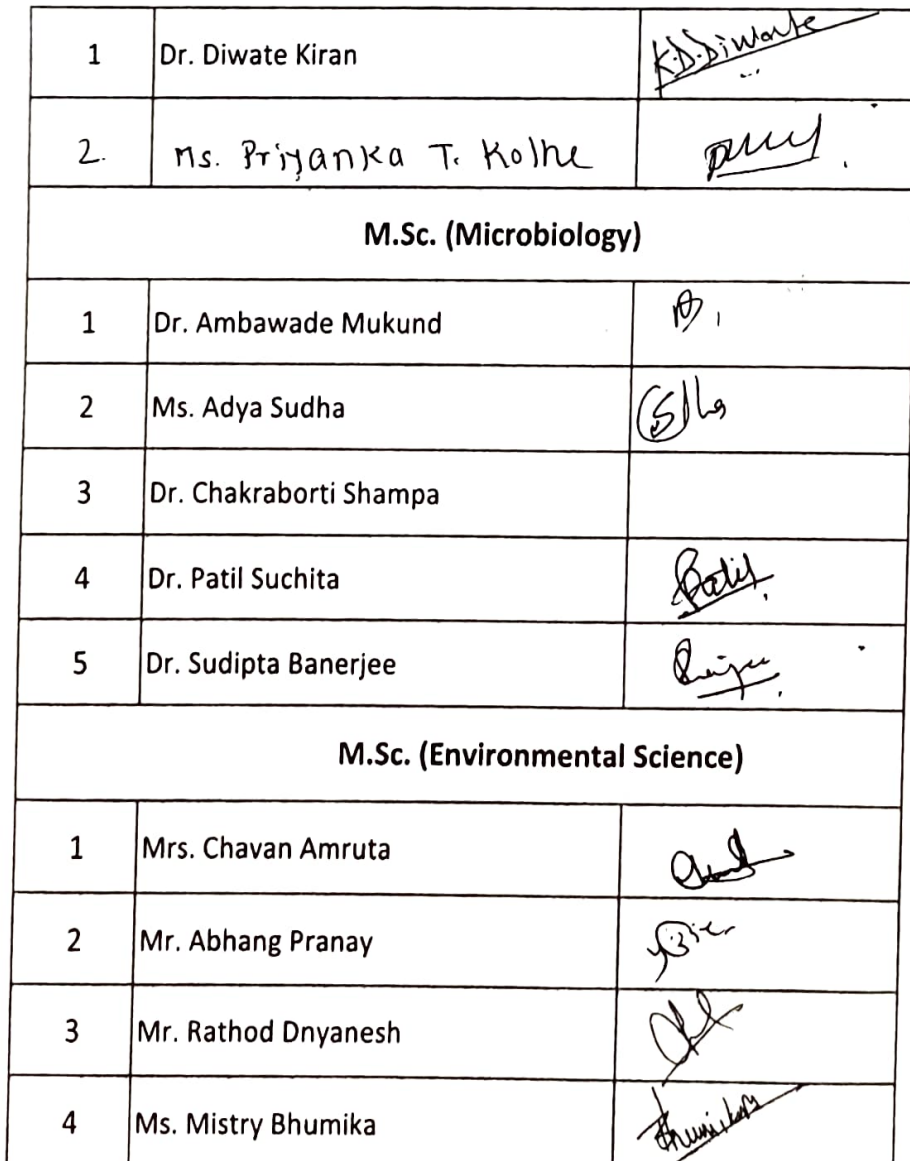 1 Dr. Diwate Kiran K.D.Diwate
2. Ms. Priyanka T. Kolhe
M.Sc. (Microbiology)
1 Dr. Ambawade Mukund
2 Ms. Adya Sudha
3 Dr. Chakraborti Shampa
4 Dr. Patil Suchita Patil
5 Dr. Sudipta Banerjee
M.Sc. (Environmental Science)
1 Mrs. Chavan Amruta
2 Mr. Abhang Pranay
3 Mr. Rathod Dnyanesh
4 Ms. Mistry Bhumika Bhumika